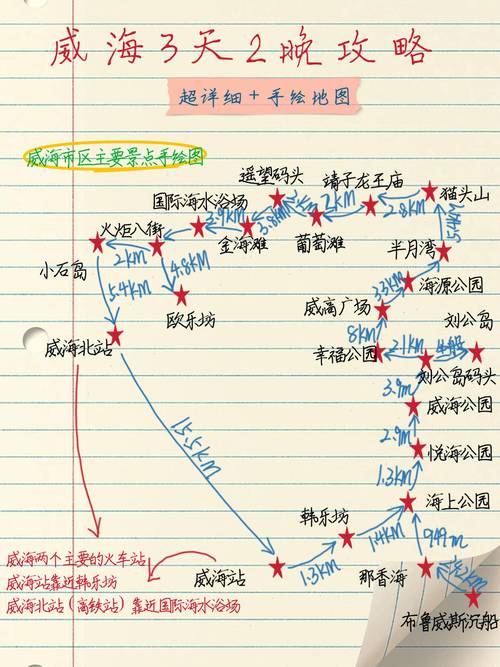 威海3天2晚攻略
超详细+手绘地图
威海市区主要景点手绘图
遥望码头
靖子龙王庙
猫头山
国际海水浴场
2KM
2.8KM
3.9KM
3.8KM
火炬八街
金海滩
葡萄滩
半月湾
2KM
4.8KM
小石岛
5.4KM
海源公园
欧乐坊
威高广场
刘公岛
8KM
威海北站
幸福公园
2.1KM
坐船
刘公岛码头
3.9m
威海公园
15.5KM
2.9m
悦海公园
1.3KM
海上公园
韩乐坊
1.4KM
949m
威海两个主要的火车站
威海站
1.3KM
那香海
威海站靠近韩乐坊
威海北站(高铁站)靠近国际海水浴场
布鲁威斯沉船